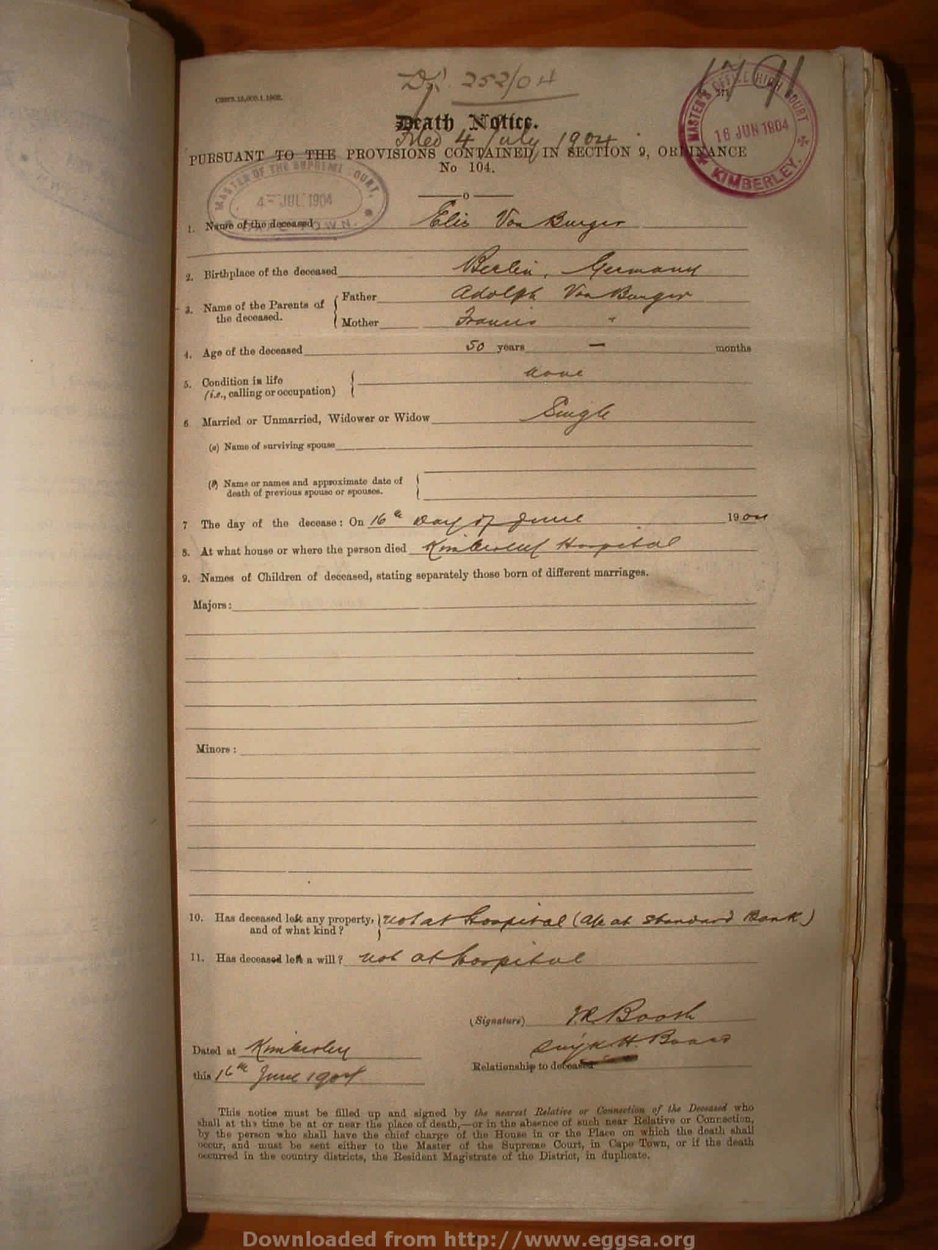 252/04
1791
Death Notice.
Filed 4 July 1904
PURSUANT TO THE PROVISIONS CONTAINED IN SECTION 9, ORDINANCE
No 104.
MASTER'S OFFICE HIGH COURT
16 JUN 1904
KIMBERLEY.
MASTER OF THE SUPREME COURT,
4 - JUL 1904
CAPE TOWN.
1. Name of the deceased Elis Von Burger
2. Birthplace of the deceased Berlin, Germany
3. Name of the Parents of the deceased. Father Adolph Von Burger
Mother Francis "
4. Age of the deceased 50 years — months
5. Condition in life (i.e., calling or occupation) none
6 Married or Unmarried, Widower or Widow Single
(a) Name of surviving spouse
(b) Name or names and approximate date of
death of previous spouse or spouses.
7 The day of the decease: On 16th Day of June 1904
8. At what house or where the person died Kimberley Hospital
9. Names of Children of deceased, stating separately those born of different marriages.
Majors:
Minors:
10. Has deceased left any property, and of what kind? not at Hospital (a/c at Standard Bank)
11. Has deceased left a will? not at hospital
(Signature)
Dated at Kimberley
Relationship to deceased
this 16th June 1904
This notice must be filled up and signed by the nearest Relative or Connection of the Deceased who
shall at the time be at or near the place of death,—or in the absence of such near Relative or Connection,
by the person who shall have the chief charge of the House in or the Place on which the death shall
occur, and must be sent either to the Master of the Supreme Court, in Cape Town, or if the death
occurred in the country districts, the Resident Magistrate of the District, in duplicate.
Downloaded from http://www.eggsa.org